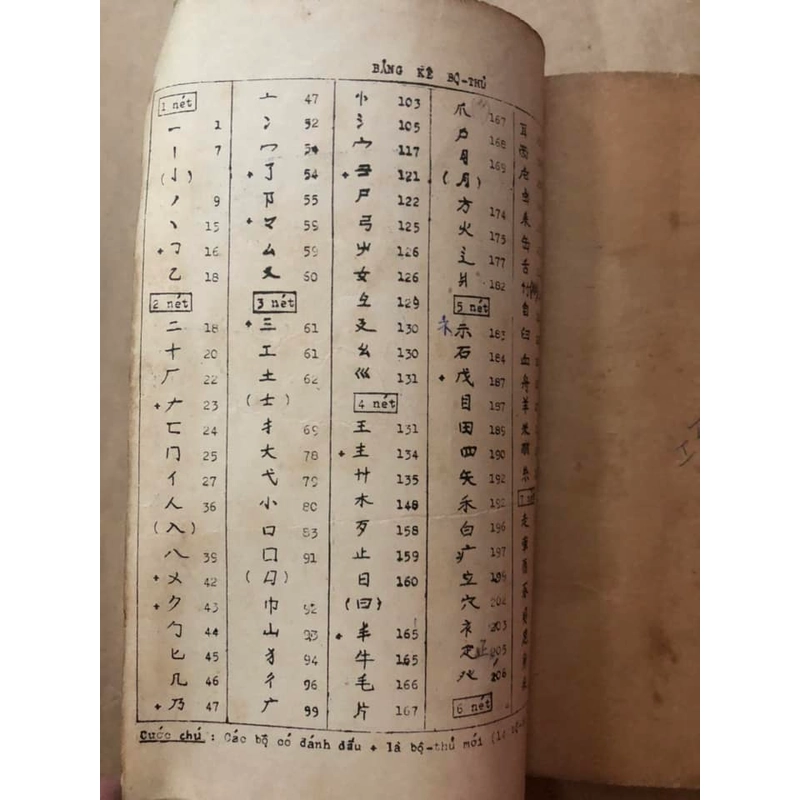 BẢNG KÊ BỘ-THỦ
1 nét
一 1
丨 7
(亅)
丿 9
丶 15
+ 𠃌 16
乙 18
2 nét
二 18
十 20
厂 22
+ 𠂇 23
匚 24
冂 25
亻 27
人 36
(入)
八 39
+ 乂 42
+ ク 43
勹 44
匕 45
几 46
+ 乃 47
亠 47
冫 52
冖 54
+ 了 54
卩 55
+ マ 59
厶 59
又 60
3 nét
+ 三 61
工 61
土 62
(士)
扌 69
大 78
弋 79
小 80
口 83
囗 91
(冃)
巾 92
山 93
犭 94
彳 96
广 99
忄 103
氵 105
宀 117
+ 彐 121
尸 122
弓 125
屮 126
女 126
彑 129
廴 130
幺 130
巛 131
4 nét
王 131
+ 主 134
艹 135
木 148
歹 158
止 159
日 160
(曰)
+ 羊 165
牛 165
毛 166
片 167
爪 167
户 168
月 169
(月)
方 174
火 175
辶 177
爿 182
5 nét
礻 示 183
石 184
+ 戊 187
目 187
田 189
四 190
矢 192
禾 192
白 196
疒 197
立 199
穴 202
衤 203
疋 205
癶 206
6 nét
耳
而
虍
虫
耒
缶
舌
竹
自
臼
血
舟
羊
米
糸
走
Cước chú : Các bộ có đánh dấu + là bộ-thủ mới